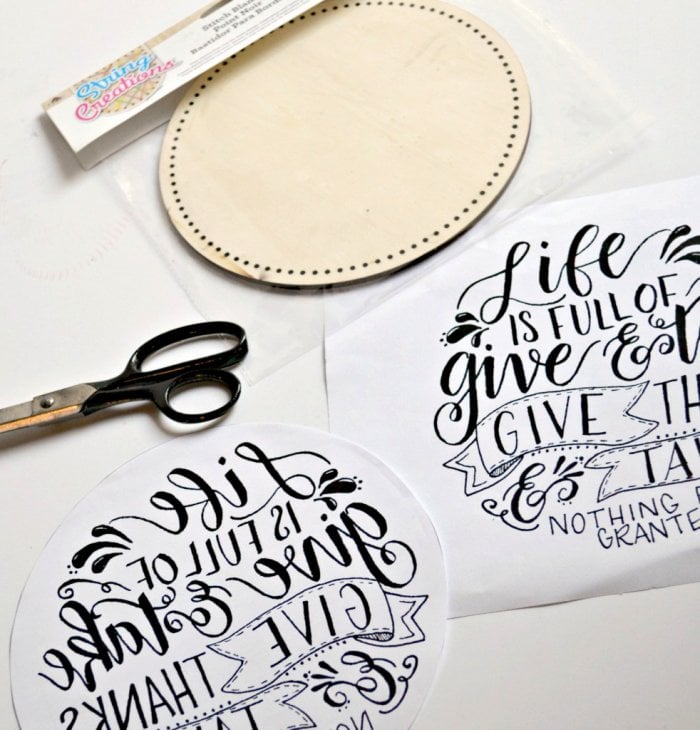 String
Creations
Stitch
Point Noir
Bastidor Para
Life
IS FULL OF
give &
GIVE TH
& TA
NOTHING
GRANTE
Life
IS FULL OF
give & take
GIVE
THANKS
&